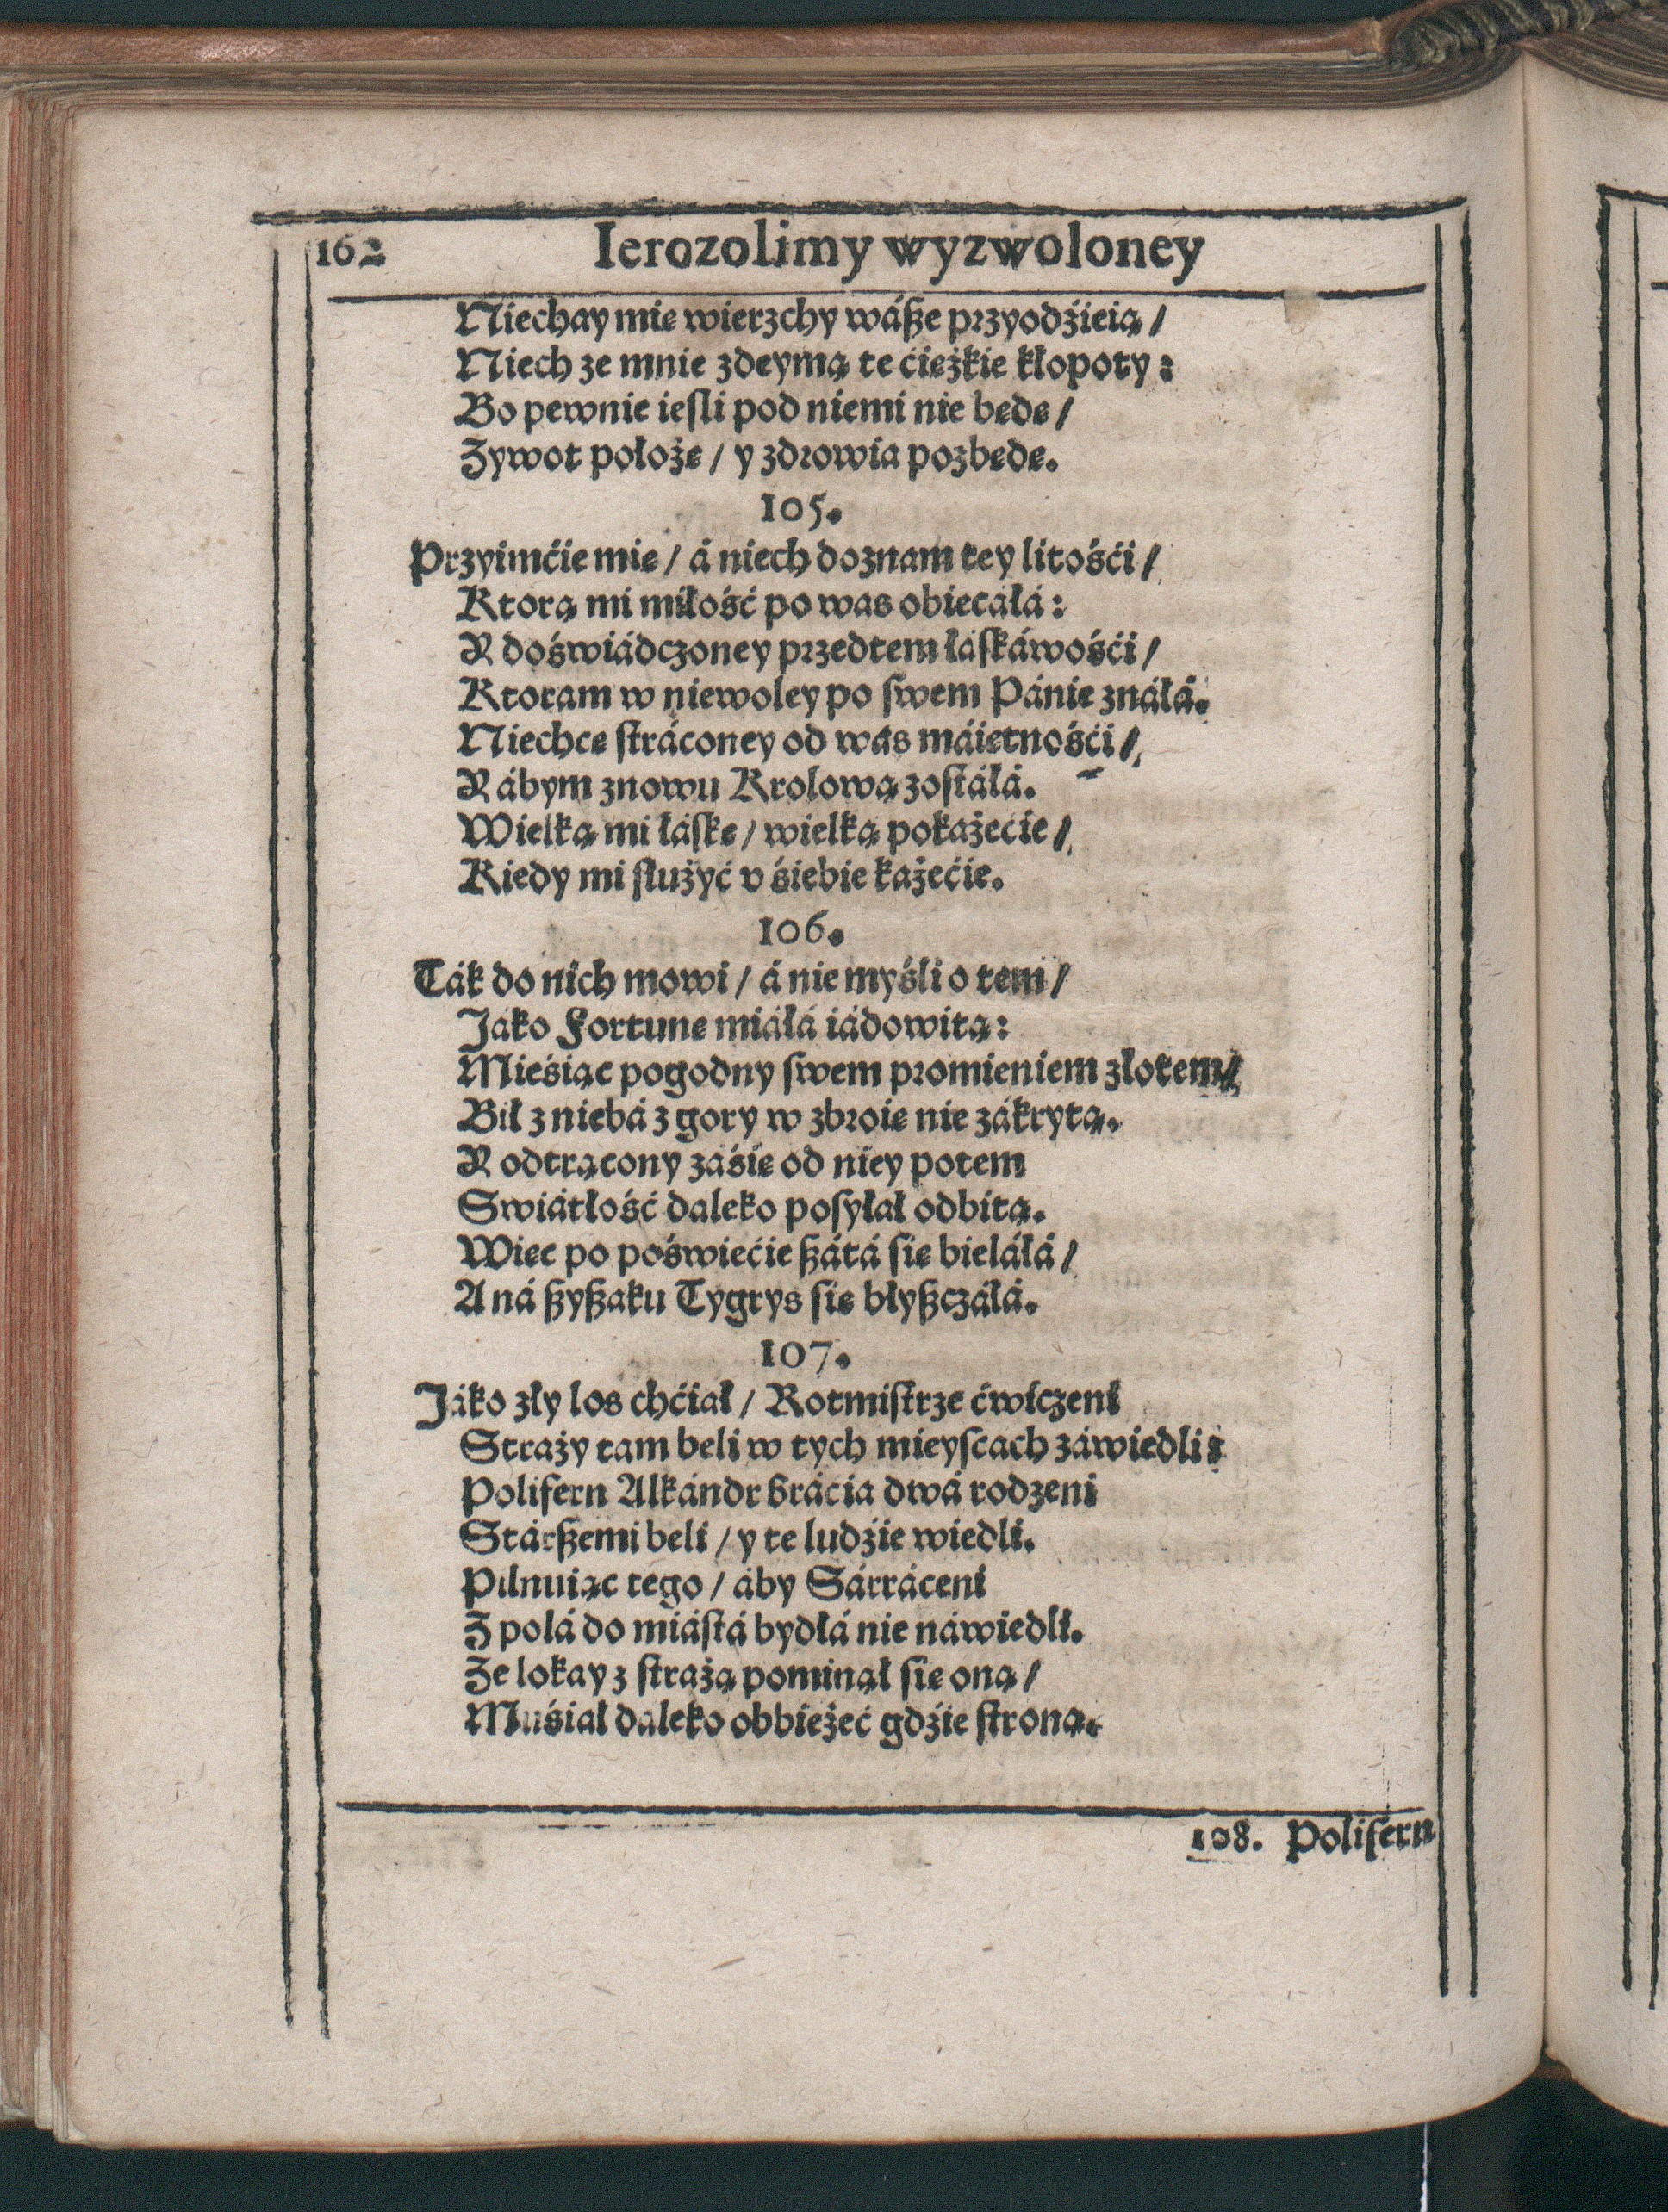 162 Ierozolimy wyzwoloney
Niechay mię wierzchy wáße przyodźieią /
Niech ze mnie zdeymą te ćiężkie kłopoty:
Bo pewnie ieſli pod niemi nie będę /
Zywot położę / y zdrowia pozbędę.
105.
Przyimćie mię / á niech doznam tey litośći /
Ktorą mi miłość po was obiecáłá:
Y doświádczoney przedtem łáſkáwośći /
Ktoram w niewoley po ſwem Pánie znáłá.
Niechcę ſtráconey od was máiętnośći /
Y ábym znowu Krolową zoſtáłá.
Wielką mi łáſkę / wielką pokażećie /
Kiedy mi ſłużyć v śiebie każećie.
106.
Ták do nich mowi / á nie myśli o tem /
Jáko Fortunę miáłá iádowitą:
Mieśiąc pogodny ſwem promieniem złotem /
Bił z niebá z gory w zbroię nie zákrytą.
Y odtrącony záśię od niey potem
Swiátłość daleko poſyłał odbitą.
Więc po poświećie ßátá ſię bieláłá /
A ná ßyßaku Tygrys ſię błyßczáłá.
107.
Jáko zły los chćiał / Rotmiſtrze ćwiczeni
Straży tam beli w tych mieyſcach záwiedli:
Polifern Alkándr bráćia dwá rodzeni
Stárßemi beli / y te ludźie wiedli.
Pilnuiąc tego / áby Sárráceni
Z polá do miáſtá bydłá nie náwiedli.
Ze lokay z ſtrażą pominął ſię oną /
Muśiał daleko obbieżeć gdźie ſtroną.
108. Polifern